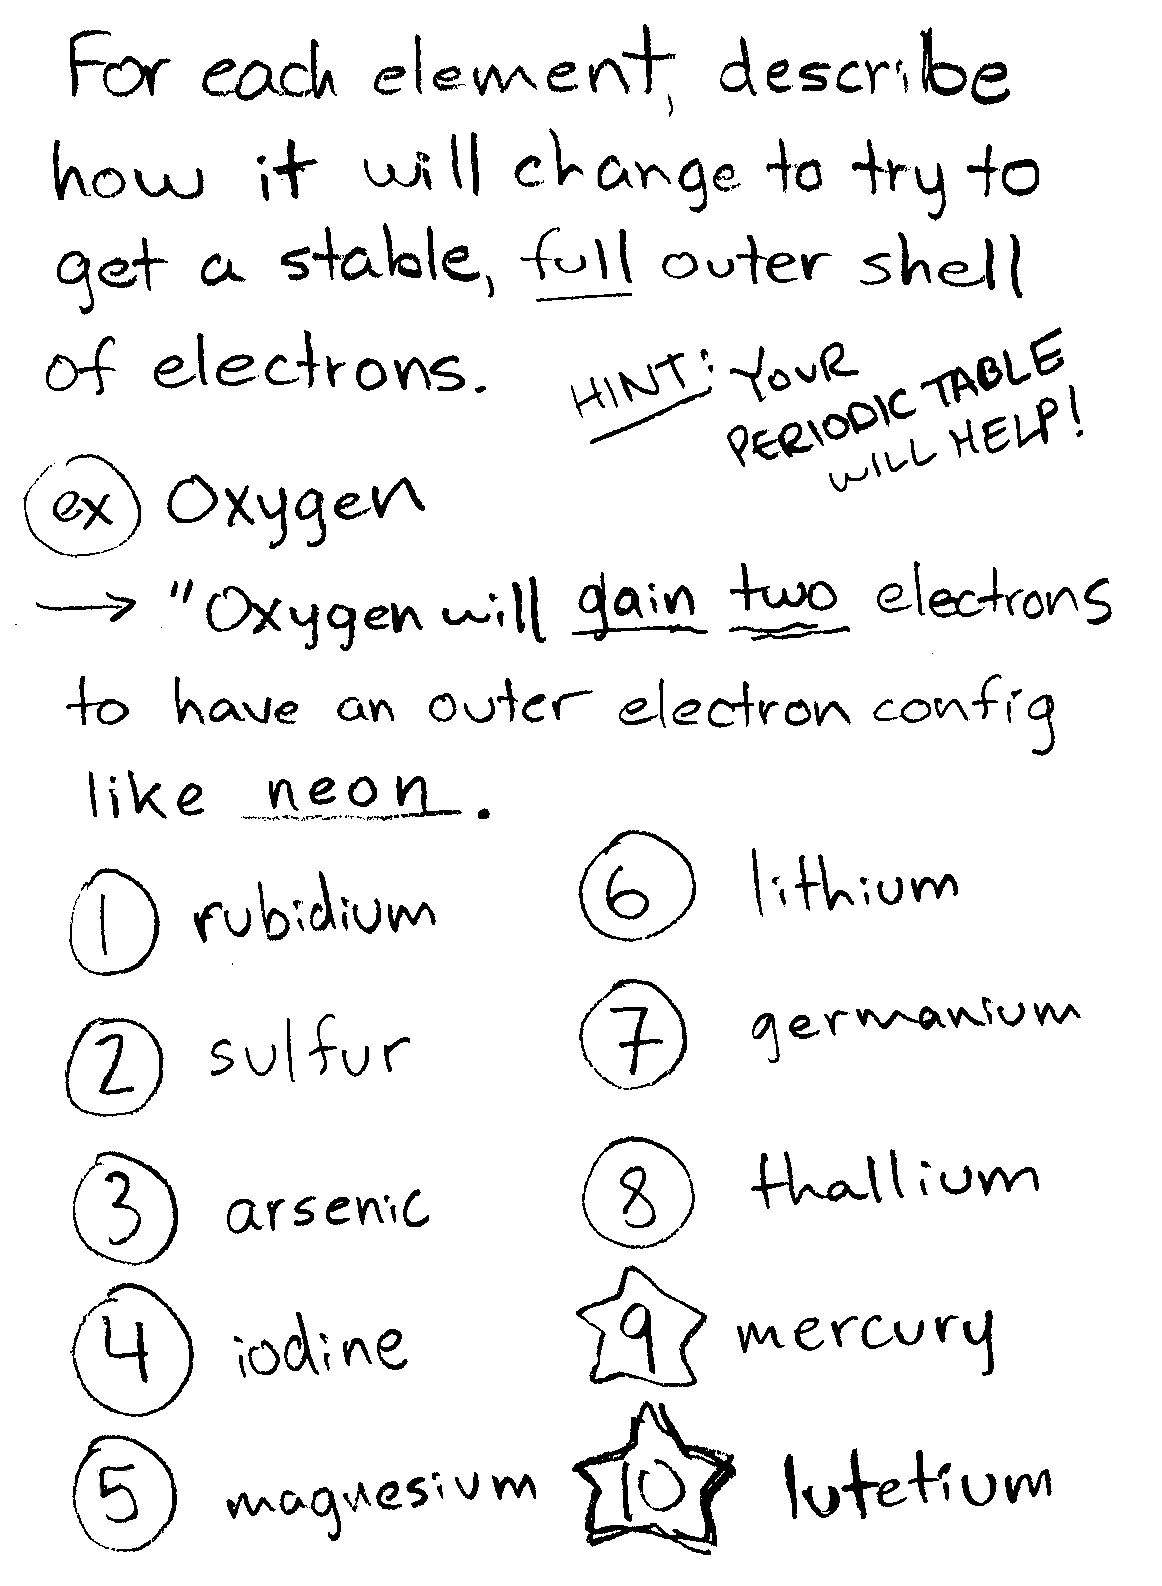 For each element, describe
how it will change to try to
get a stable, full outer shell
of electrons.
HINT: YOUR
PERIODIC TABLE
WILL HELP!
ex Oxygen
→ "Oxygen will gain two electrons
to have an outer electron config
like neon.
1 rubidium
2 sulfur
3 arsenic
4 iodine
5 magnesium
6 lithium
7 germanium
8 thallium
9 mercury
10 lutetium